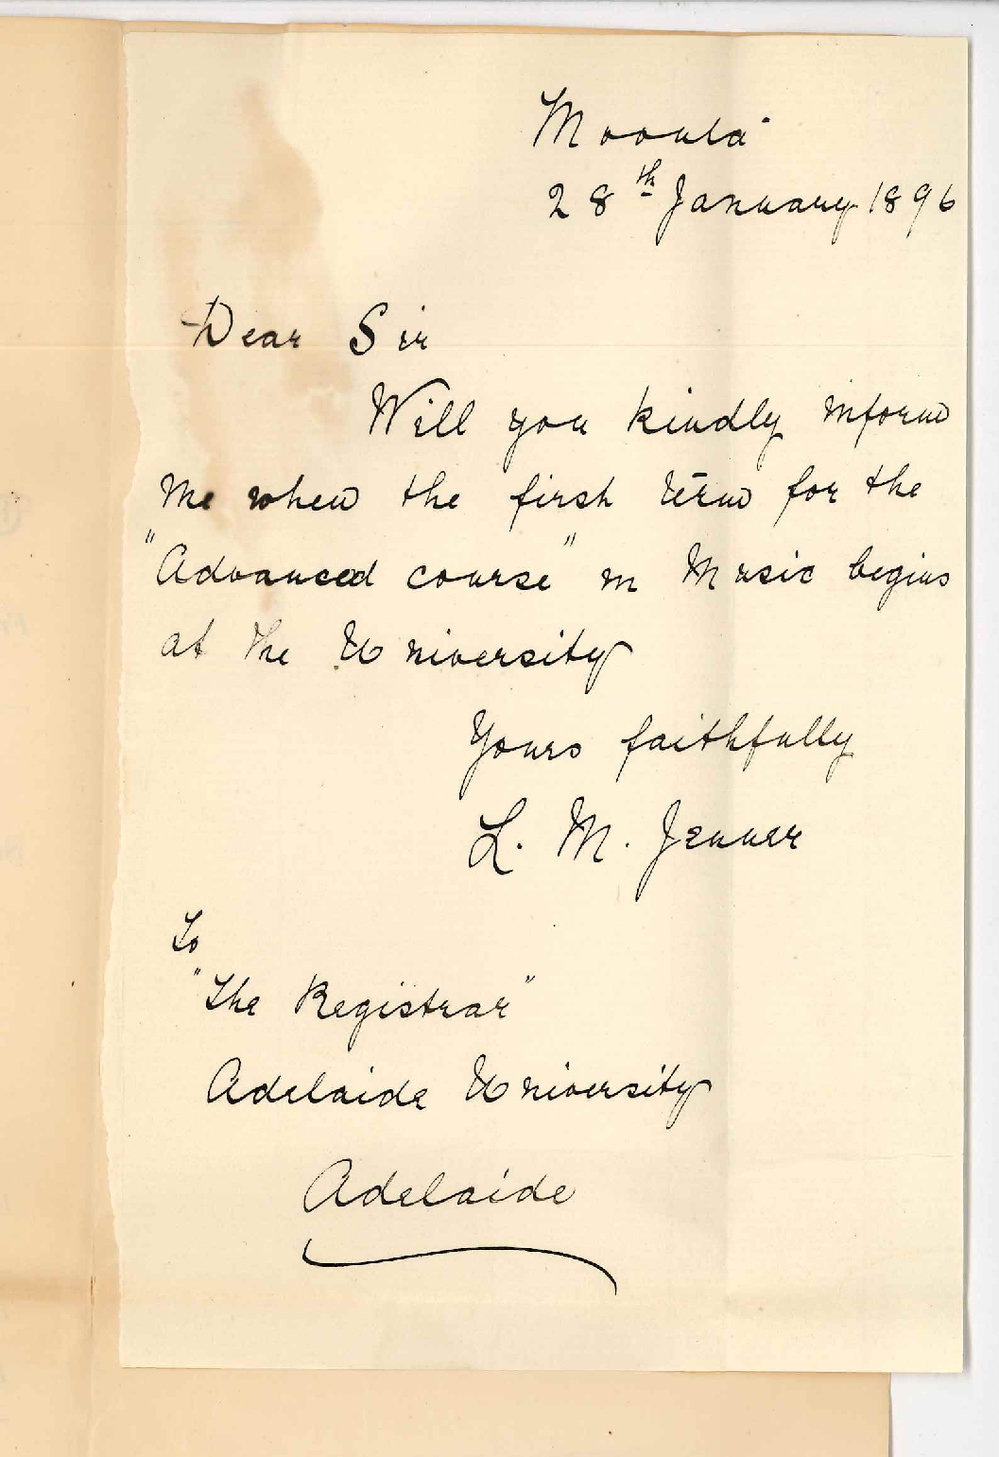 Moonta
28th January 1896
Dear Sir
Will you kindly inform
me when the first term for the
"Advanced course" in Music begins
at the University
Yours faithfully
L. M. Jenner
To
"The Registrar"
Adelaide University
Adelaide